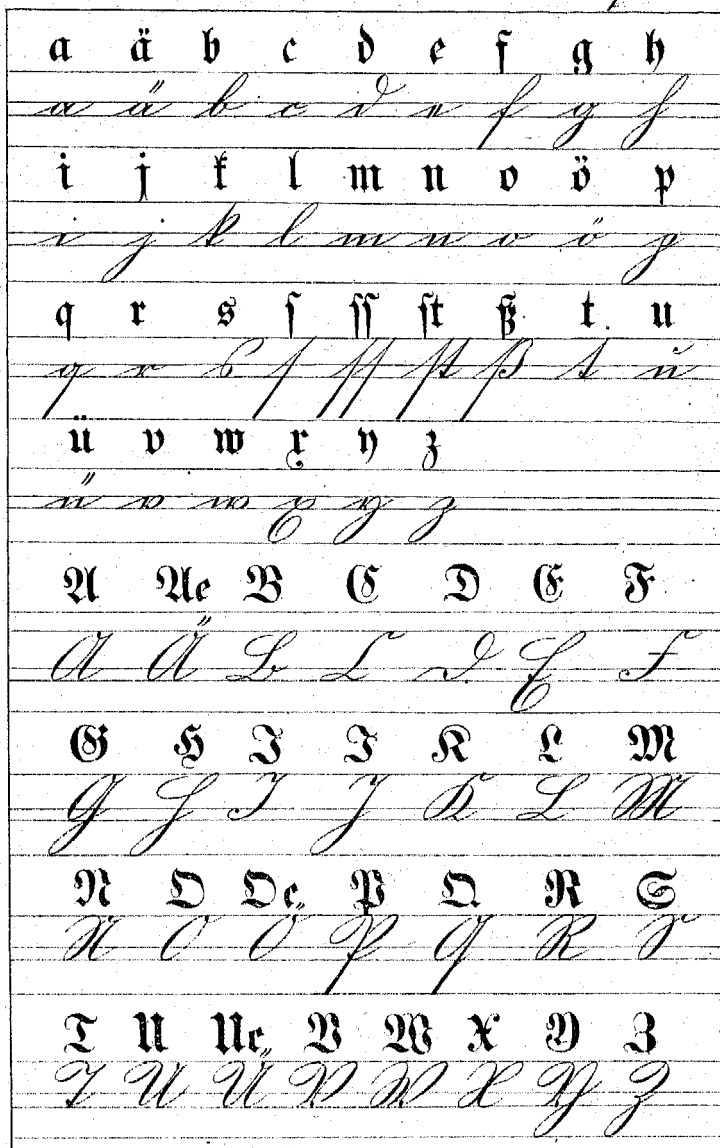 a ä b c d e f g h
a ä b c d e f g h
i j k l m n o ö p
i j k l m n o ö p
q r s ſ ſſ ſt ß t u
q r s ſ ſſ ſt ß t u
ü v w x y z
ü v w x y z
A Ae B C D E F
A Ä B C D E F
G H I J K L M
G H I J K L M
N O Oe P Q R S
N O Ö P Q R S
T U Ue V W X Y Z
T U Ü V W X Y Z